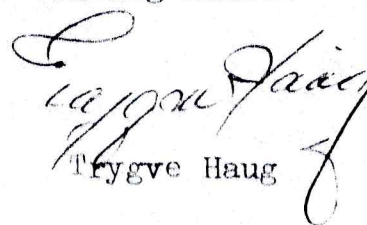 Trygve Haug
Trygve Haug